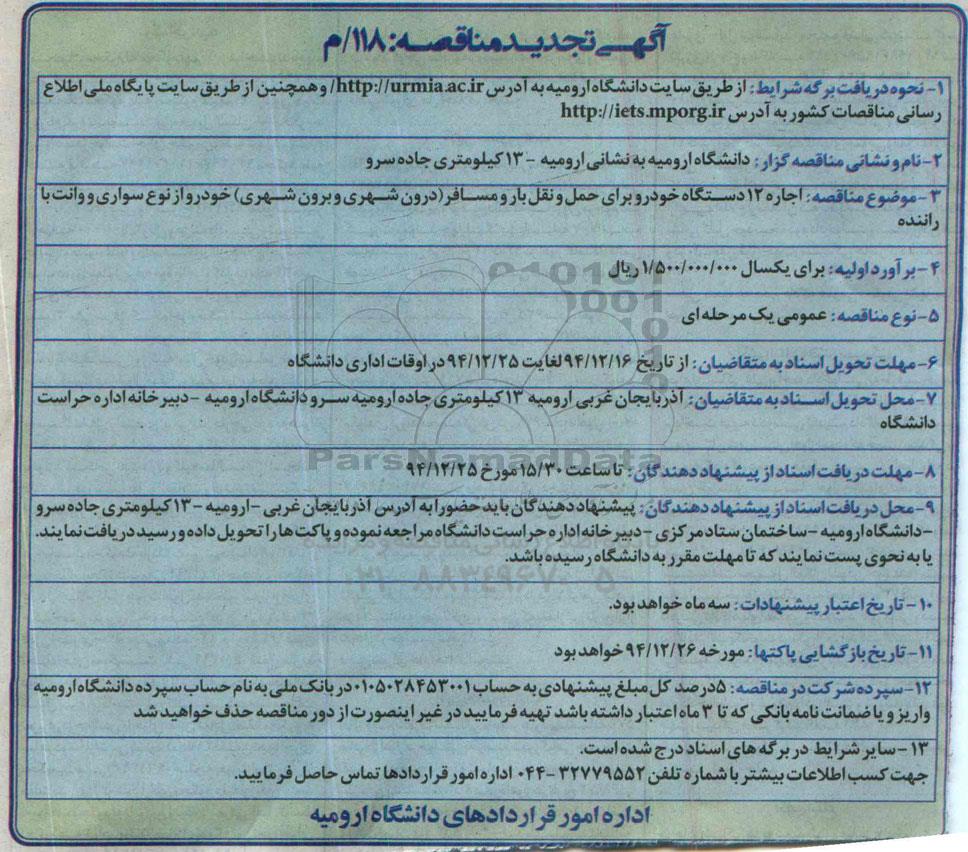 آگهی تجدید مناقصه: ۱۱۸/م
۱- نحوه دریافت برگه شرایط: از طریق سایت دانشگاه ارومیه به آدرس http://urmia.ac.ir/ و همچنین از طریق سایت پایگاه ملی اطلاع
رسانی مناقصات کشور به آدرس http://iets.mporg.ir
۲- نام و نشانی مناقصه گزار: دانشگاه ارومیه به نشانی ارومیه - ۱۳ کیلومتری جاده سرو
۳- موضوع مناقصه: اجاره ۱۲ دستگاه خودرو برای حمل و نقل بار و مسافر (درون شهری و برون شهری) خودرو از نوع سواری و وانت با
راننده
۴- برآورد اولیه: برای یکسال ۱/۵۰۰/۰۰۰/۰۰۰ ریال
۵- نوع مناقصه: عمومی یک مرحله ای
۶- مهلت تحویل اسناد به متقاضیان: از تاریخ ۹۴/۱۲/۱۶ لغایت ۹۴/۱۲/۲۵ در اوقات اداری دانشگاه
۷- محل تحویل اسناد به متقاضیان: آذربایجان غربی ارومیه ۱۳ کیلومتری جاده ارومیه سرو دانشگاه ارومیه - دبیرخانه اداره حراست
دانشگاه
ParsNamadData
۸- مهلت دریافت اسناد از پیشنهاد دهندگان: تا ساعت ۱۵/۳۰ مورخ ۹۴/۱۲/۲۵
۹- محل دریافت اسناد از پیشنهاد دهندگان: پیشنهاد دهندگان باید حضورا به آدرس آذربایجان غربی - ارومیه - ۱۳ کیلومتری جاده سرو
- دانشگاه ارومیه - ساختمان ستاد مرکزی - دبیرخانه اداره حراست دانشگاه مراجعه نموده و پاکت ها را تحویل داده و رسید دریافت نمایند.
یا به نحوی پست نمایند که تا مهلت مقرر به دانشگاه رسیده باشد.
۰۲۱-۸۸۳۴۹۶۷۰-۵
۱۰- تاریخ اعتبار پیشنهادات: سه ماه خواهد بود.
۱۱- تاریخ بازگشایی پاکتها: مورخه ۹۴/۱۲/۲۶ خواهد بود
۱۲- سپرده شرکت در مناقصه: ۵ درصد کل مبلغ پیشنهادی به حساب ۰۱۰۵۰۲۸۴۵۳۰۰۱ در بانک ملی به نام حساب سپرده دانشگاه ارومیه
واریز و یا ضمانت نامه بانکی که تا ۳ ماه اعتبار داشته باشد تهیه فرمایید در غیر اینصورت از دور مناقصه حذف خواهید شد
۱۳- سایر شرایط در برگه های اسناد درج شده است.
جهت کسب اطلاعات بیشتر با شماره تلفن ۳۲۷۷۹۵۵۲-۰۴۴ اداره امور قراردادها تماس حاصل فرمایید.
اداره امور قراردادهای دانشگاه ارومیه